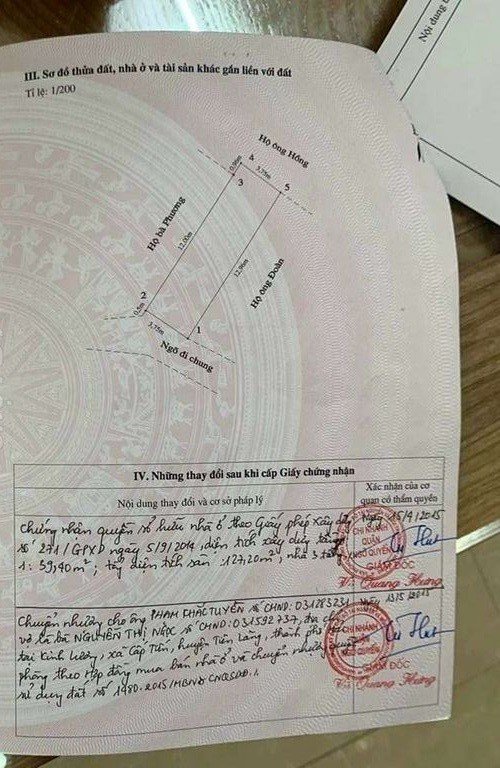 Nội dung t
III. Sơ đồ thửa đất, nhà ở và tài sản khác gắn liền với đất
Tỉ lệ: 1/200
Hộ ông Hồng
0,96m
4
3,75m
3
5
Hộ bà Phương
12,00m
12,96m
Hộ ông Đoàn
2
0,5m
3,75m
1
Ngõ đi chung
IV. Những thay đổi sau khi cấp Giấy chứng nhận
Nội dung thay đổi và cơ sở pháp lý
Xác nhận của cơ quan có thẩm quyền
Chứng nhận quyền sở hữu nhà ở theo Giấy phép xây dựng
số 271/GPXD ngày 5/9/2014, diện tích xây dựng tầng
1: 39,40m²; tổng diện tích sàn: 127,20m², nhà 3 tầng
Ngày 15/4/2015
CHI NHÁNH
QUẬN
GIÁM ĐỐC
Quang Hưng
Chuyển nhượng cho ông PHẠM KHẮC TUYÊN số CMND: 031283231
và bà NGUYỄN THỊ NGỌC số CMND: 031592737, địa chỉ
tại Kinh Lương, xã Cấp Tiến, huyện Tiên Lãng, thành phố Hải
phòng theo Hợp đồng mua bán nhà ở và chuyển nhượng quyền
sử dụng đất số 1980.2015/MBNO CNQSDĐ.
13/5/2015
CHI NHÁNH
GIÁM ĐỐC
Quang Hưng